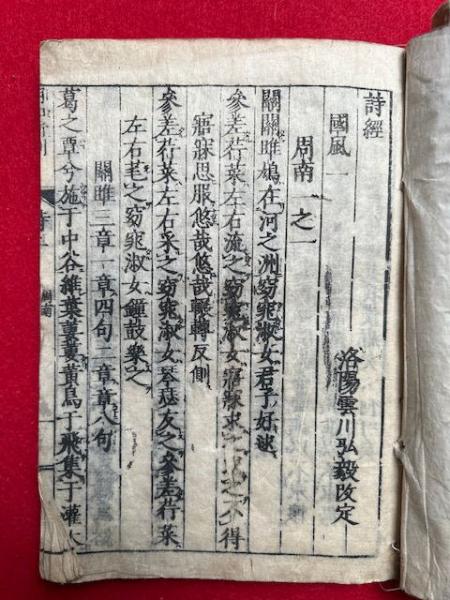 詩經
國風一
洛陽雲川弘毅改定
周南之一
關關雎鳩在河之洲窈窕淑女君子好逑
參差荇菜左右流之窈窕淑女寤寐求之求之不得
寤寐思服悠哉悠哉輾轉反側
參差荇菜左右采之窈窕淑女琴瑟友之參差荇菜
左右芼之窈窕淑女鐘鼓樂之
關雎三章一章四句二章章八句
葛之覃兮施于中谷維葉萋萋黃鳥于飛集于灌木
周南